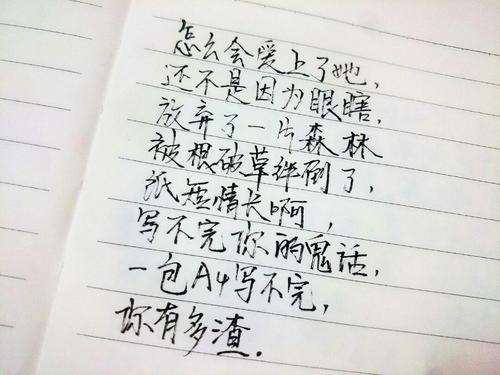 怎么会爱上了她,
还不是因为眼瞎,
放弃了一片森林
被根破草绊倒了,
纸短情长啊,
写不完你的鬼话,
一包A4写不完,
你有多渣.